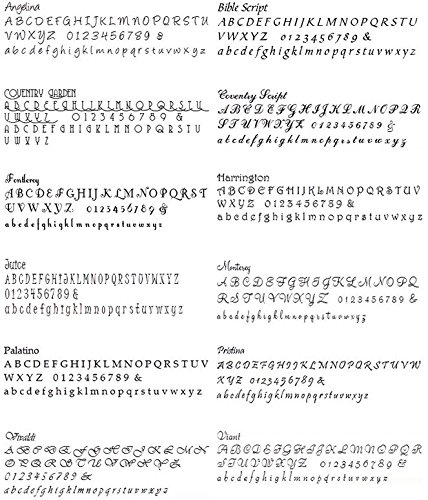 Angelina
ABCDEFGHIJKLMNOPQRSTU
VWXYZ 0123456789 &
abcdefghigklmnopqrstuvwxyz
Bible Script
ABCDEFGHIJKLMNOPQRSTUV
WXYZ 0123456789 &
abcdefghigklmnopqrstuvwxyz
COVENTRY GARDEN
ABCDEFGHIJKLMNOPQRSTU
VWXYZ 0123456789 &
ABCDEFGHIGKLMNOPQRSTUVWXYZ
Coventry Script
ABCDEFGHIJKLMNOPQR
STUVWXYZ 0123456789 &
abcdefghigklmnopqrstuvwxyz
Fontleroy
ABCDEFGHIJKLMNOPQRST
UVWXYZ 0123456789 &
abcdefghigklmnopqrstuvwxyz
Harrington
ABCDEFGHIJKLMNOPQRSTUV
WXYZ 0123456789 &
abcdefghigklmnopqrstuvwxyz
Juice
ABCDEFGHIJKLMNOPQRSTUVWXYZ
0123456789 &
abcdefghigklmnopqrstuvwxyz
Monterey
ABCDEFGHIJKLMNOPQ
RSTUVWXYZ 0123456789 &
abcdefghigklmnopqrstuvwxyz
Palatino
ABCDEFGHIJKLMNOPQRSTUV
WXYZ 0123456789 &
abcdefghigklmnopqrstuvwxyz
Pristina
ABCDEFGHIJKLMNOPQRSTUVW
XYZ 0123456789 &
abcdefghigklmnopqrstuvwxyz
Vivaldi
ABCDEFGHIJKLMN
OPQRSTUVWXYZ 0123456789 &
abcdefghigklmnopqrstuvwxyz
Viant
ABCDEFGHIJKLMNOPQRST
UVWXYZ 0123456789 &
abcdefghigklmnopqrstuvwxyz